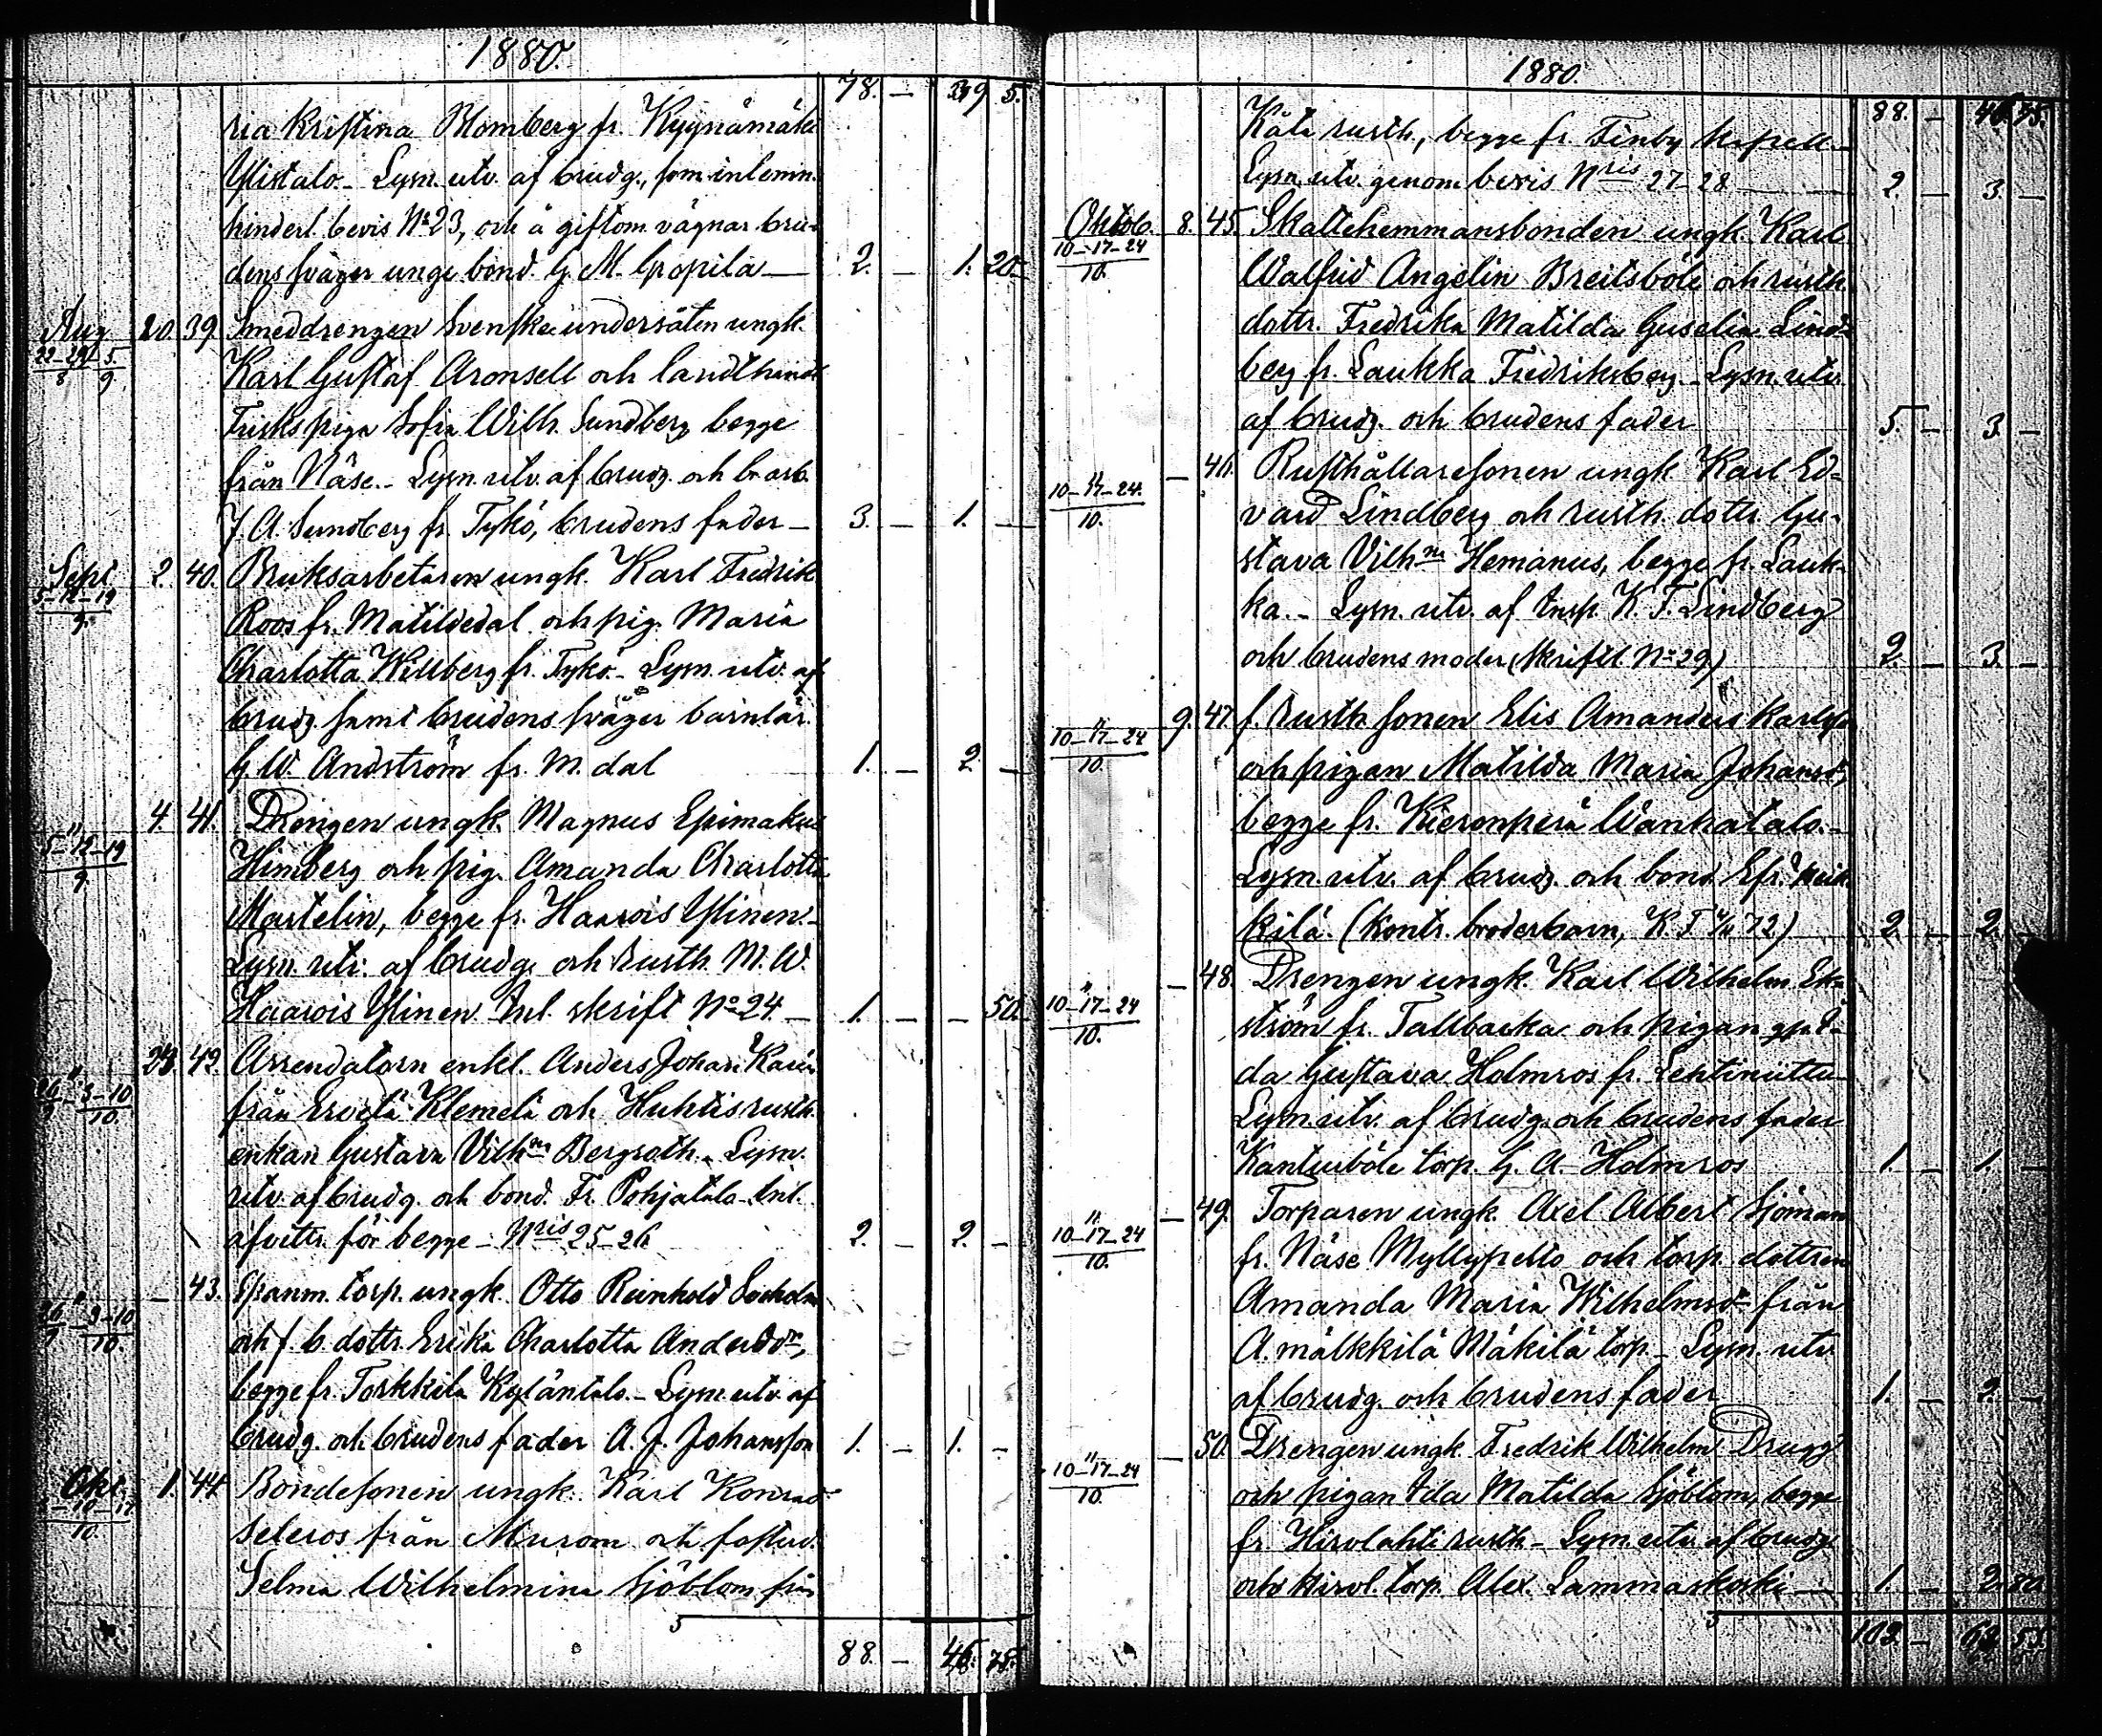 1880.
78. — 39 5.
ria Kristina Blomberg fr. Kyynämäki
Ylistalo. - Lysn. utv. af brudg., som inlemn.
hinderl. bevis No 23, och å giftom. vägnar bru-
dens svåger unge bond. G. M. Uopila — 2. — 1. 20.
Aug. 20. 39. Smeddrengen Svenske undersåten ungk.
22-29/8 5/9 Karl Gustaf Aronsell och landthandl.
Frisks piga Sofia Wilh. Sundberg begge
från Näse. - Lysn. utv. af brudg. och br. arb.
J. A. Sundberg fr. Tykö, brudens fader — 3. — 1. —
Sept. 2. 40. Bruksarbetaren ungk. Karl Fredrik
5-12-19/9. Roos fr. Matildedal och pig. Maria
Charlotta Willberg fr. Tykö. - Lysn. utv. af
brudg. samt brudens svåger barnlär.
G. W. Andström fr. M. dal 1. — 2 —
" 4. 41. Drengen ungk. Magnus Epimakus
5-12-19/9 Himberg och pig. Amanda Charlotta
Martelin, begge fr. Haarois Ylinen. -
Lysn. utv. af brudg. och rusth. M. W.
Haarois Ylinen. Inl. skrift No 24 — 1. — — 50.
" 24. 42. Arrendatorn enkl. Anders Johan Karén
26/9 - 3-10/10. från Ervelä Klemelä och Huhtis rusth.
enkan Gustava Vilhna Bergroth. - Lysn.
utv. af brudg. och bond. Fr. Pohjatalo. Inl.
afvittr. för begge - Nris 25-26 2. — 2. —
" — 43. Spanm. torp. ungk. Otto Reinhold
26/9 - 3-10/10. och f. b. dottr. Erika Charlotta Andersdr,
begge fr. Torkkila Kyläntalo. - Lysn. utv. af
brudg. och brudens fader A. J. Johansson 1. — 1. —
Okt. 1. 44. Bondesonen ungk. Karl Konrad
3-10-17/10. Seleros från Murom och fosterd.
Selma Wilhelmina Sjöblom från
88. — 46. 75.
1880.
88. — 46. 75.
Kåta rusth., begge fr. Finby kapell. -
Lysn. utv. genom bevis Nris 27-28 — 2. — 3. —
Oktob. 8. 45. Skattehemmansbonden ungk. Karl
10-17-24/10. Walfrid Angelin Breitsböle och rusth.
dottr. Fredrika Matilda Guselia Lind-
berg fr. Laukka Fredriksberg. - Lysn. utv.
af brudg. och brudens fader 5. — 3. —
" — 46. Rusthållaresonen ungk. Karl Ed-
10-17-24./10. vard Lindberg och rusth. dottr. Gu-
stava Vilhna Hemanus, begge fr. Lauk-
ka. - Lysn. utv. af Insp. K. F. Lindberg
och brudens moder (skriftl. No 29) 2. — 3. —
" 9. 47. f. rusth. sonen Elis Amandus Karlsson
10-17-24/10. och pigan Matilda Maria Johansdr,
begge fr. Kieronperä Wanhatalo. -
Lysn. utv. af brudg. och bond. Efr. Heik-
kilä. (Kontr. broderbarn, K. F. 72) 2. — 2. —
" — 48. Drengen ungk. Karl Wilhelm Ek-
10-17-24/10. ström fr. Tallbacka och pigan
da Gustava Holmros fr. Lehtiniittu
Lysn. utv. af brudg. och brudens fader
Kantuböle torp. G. A. Holmros 1. — 1. —
" — 49. Torparen ungk. Axel Albert Sjöman
10-17-24/10. fr. Näse Myllypelto och torp. dottren
Amanda Maria Wilhelmsdr från
A. mälkkilä Mäkilä torp. - Lysn. utv.
af brudg. och brudens fader 1. — 2. —
" — 50. Drengen ungk. Fredrik Wilhelm Drugg
10-17-24/10. och pigan Ida Matilda Sjöblom, begge
fr. Hirvlahti rusth. - Lysn. utv. af brudg.
och Hirvl. torp. Alex. Lammaskoski — 1. — 2. 80
102. —